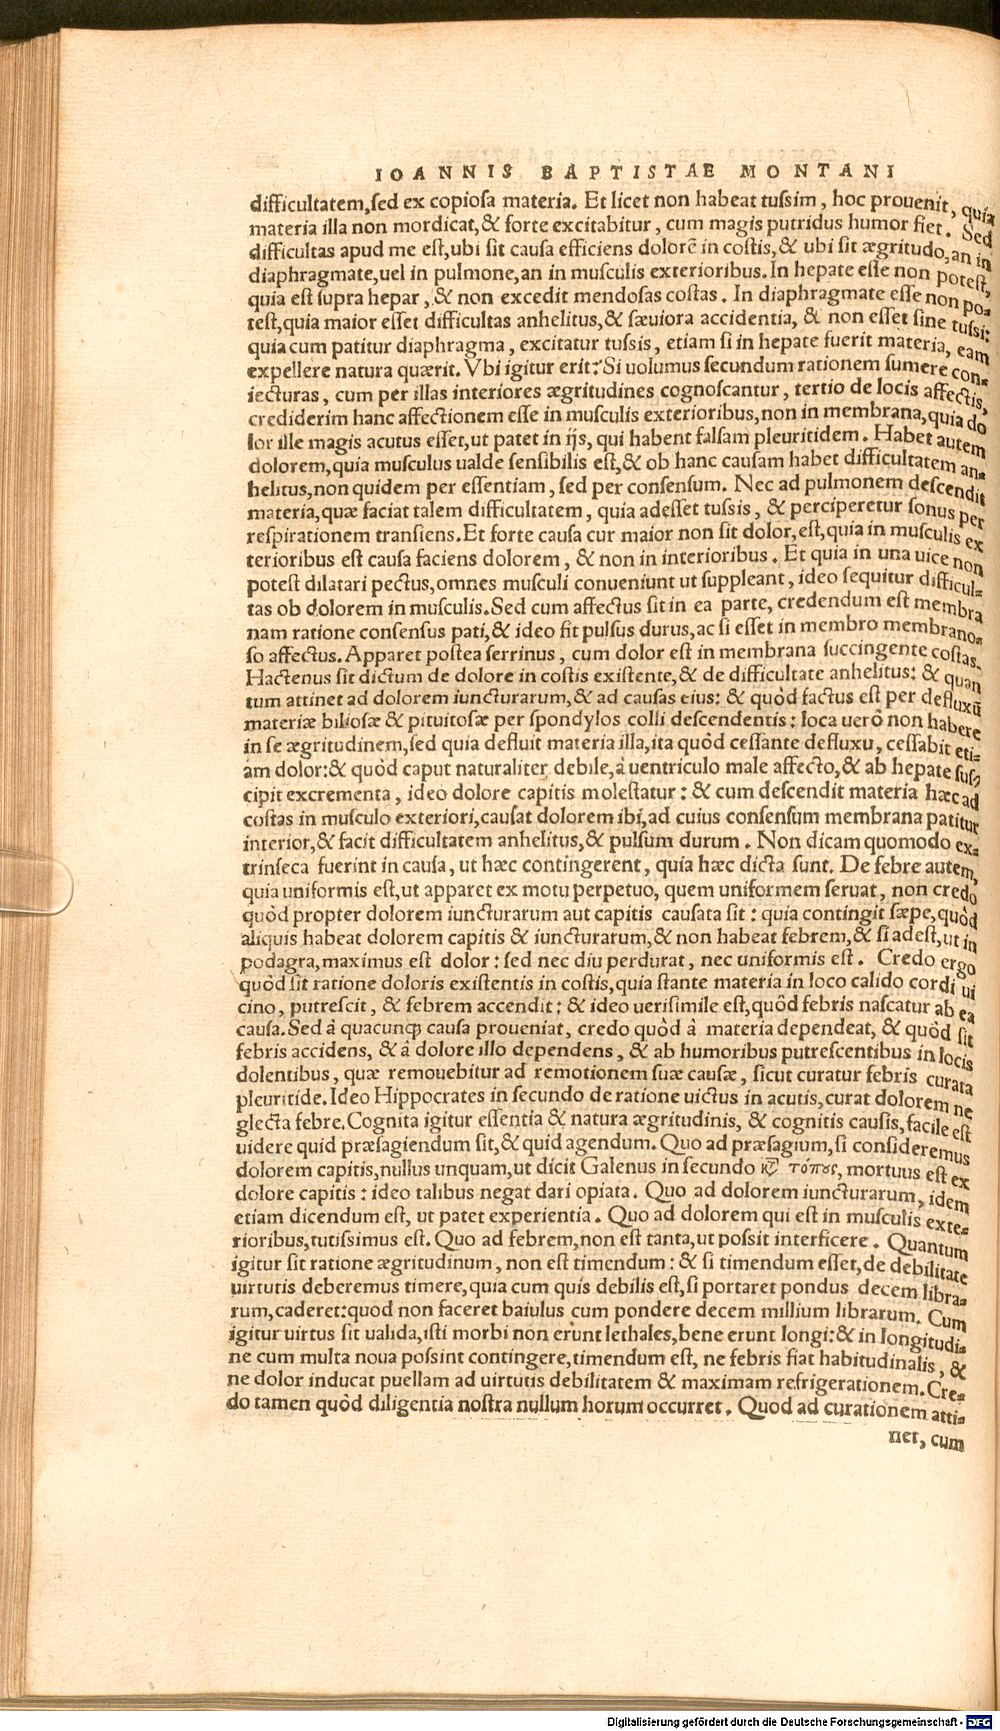 IOANNIS BAPTISTAE MONTANI
difficultatem, sed ex copiosa materia. Et licet non habeat tussim, hoc prouenit, quia
materia illa non mordicat, & forte excitabitur, cum magis putridus humor fiet. Sed
difficultas apud me est, ubi sit causa efficiens dolorē in costis, & ubi sit ægritudo, an in
diaphragmate, uel in pulmone, an in musculis exterioribus. In hepate esse non potest,
quia est supra hepar, & non excedit mendosas costas. In diaphragmate esse non po-
test, quia maior esset difficultas anhelitus, & sæuiora accidentia, & non esset sine tussi:
quia cum patitur diaphragma, excitatur tussis, etiam si in hepate fuerit materia, eam
expellere natura quærit. Vbi igitur erit? Si uolumus secundum rationem sumere con-
iecturas, cum per illas interiores ægritudines cognoscantur, tertio de locis affectis,
crediderim hanc affectionem esse in musculis exterioribus, non in membrana, quia do
lor ille magis acutus esset, ut patet in ijs, qui habent falsam pleuritidem. Habet autem
dolorem, quia musculus ualde sensibilis est, & ob hanc causam habet difficultatem an-
helitus, non quidem per essentiam, sed per consensum. Nec ad pulmonem descendit
materia, quæ faciat talem difficultatem, quia adesset tussis, & perciperetur sonus per
respirationem transiens. Et forte causa cur maior non sit dolor, est, quia in musculis ex
terioribus est causa faciens dolorem, & non in interioribus. Et quia in una uice non
potest dilatari pectus, omnes musculi conueniunt ut suppleant, ideo sequitur difficul-
tas ob dolorem in musculis. Sed cum affectus sit in ea parte, credendum est membra
nam ratione consensus pati, & ideo fit pulsus durus, ac si esset in membro membrano-
so affectus. Apparet postea serrinus, cum dolor est in membrana succingente costas.
Hactenus sit dictum de dolore in costis existente, & de difficultate anhelitus: & quan
tum attinet ad dolorem iuncturarum, & ad causas eius: & quòd factus est per defluxū
materiæ biliosæ & pituitosæ per spondylos colli descendentis: loca uerò non habere
in se ægritudinem, sed quia defluit materia illa, ita quòd cessante defluxu, cessabit eti-
am dolor: & quòd caput naturaliter debile, à uentriculo male affecto, & ab hepate sus-
cipit excrementa, ideo dolore capitis molestatur: & cum descendit materia hæc ad
costas in musculo exteriori, causat dolorem ibi, ad cuius consensum membrana patitur
interior, & facit difficultatem anhelitus, & pulsum durum. Non dicam quomodo ex-
trinseca fuerint in causa, ut hæc contingerent, quia hæc dicta sunt. De febre autem,
quia uniformis est, ut apparet ex motu perpetuo, quem uniformem seruat, non credo
quòd propter dolorem iuncturarum aut capitis causata sit: quia contingit sæpe, quòd
aliquis habeat dolorem capitis & iuncturarum, & non habeat febrem, & si adest, ut in
podagra, maximus est dolor: sed nec diu perdurat, nec uniformis est. Credo ergo
quòd sit ratione doloris existentis in costis, quia stante materia in loco calido cordi ui
cino, putrescit, & febrem accendit: & ideo uerisimile est, quòd febris nascatur ab ea
causa. Sed à quacunq; causa proueniat, credo quòd à materia dependeat, & quòd sit
febris accidens, & à dolore illo dependens, & ab humoribus putrescentibus in locis
dolentibus, quæ remouebitur ad remotionem suæ causæ, sicut curatur febris curata
pleuritide. Ideo Hippocrates in secundo de ratione uictus in acutis, curat dolorem ne
glecta febre. Cognita igitur essentia & natura ægritudinis, & cognitis causis, facile est
uidere quid præsagiendum sit, & quid agendum. Quo ad præsagium, si consideremus
dolorem capitis, nullus unquam, ut dicit Galenus in secundo κϳ τόπους, mortuus est ex
dolore capitis: ideo talibus negat dari opiata. Quo ad dolorem iuncturarum, idem
etiam dicendum est, ut patet experientia. Quo ad dolorem qui est in musculis exte-
rioribus, tutissimus est. Quo ad febrem, non est tanta, ut possit interficere. Quantum
igitur sit ratione ægritudinum, non est timendum: & si timendum esset, de debilitate
uirtutis deberemus timere, quia cum quis debilis est, si portaret pondus decem libra-
rum, caderet: quod non faceret baiulus cum pondere decem millium librarum. Cum
igitur uirtus sit ualida, isti morbi non erunt lethales, bene erunt longi: & in longitudi-
ne cum multa noua possint contingere, timendum est, ne febris fiat habitudinalis, &
ne dolor inducat puellam ad uirtutis debilitatem & maximam refrigerationem. Cre-
do tamen quòd diligentia nostra nullum horum occurret. Quod ad curationem atti-
net, cum
Digitalisierung gefördert durch die Deutsche Forschungsgemeinschaft - DFG